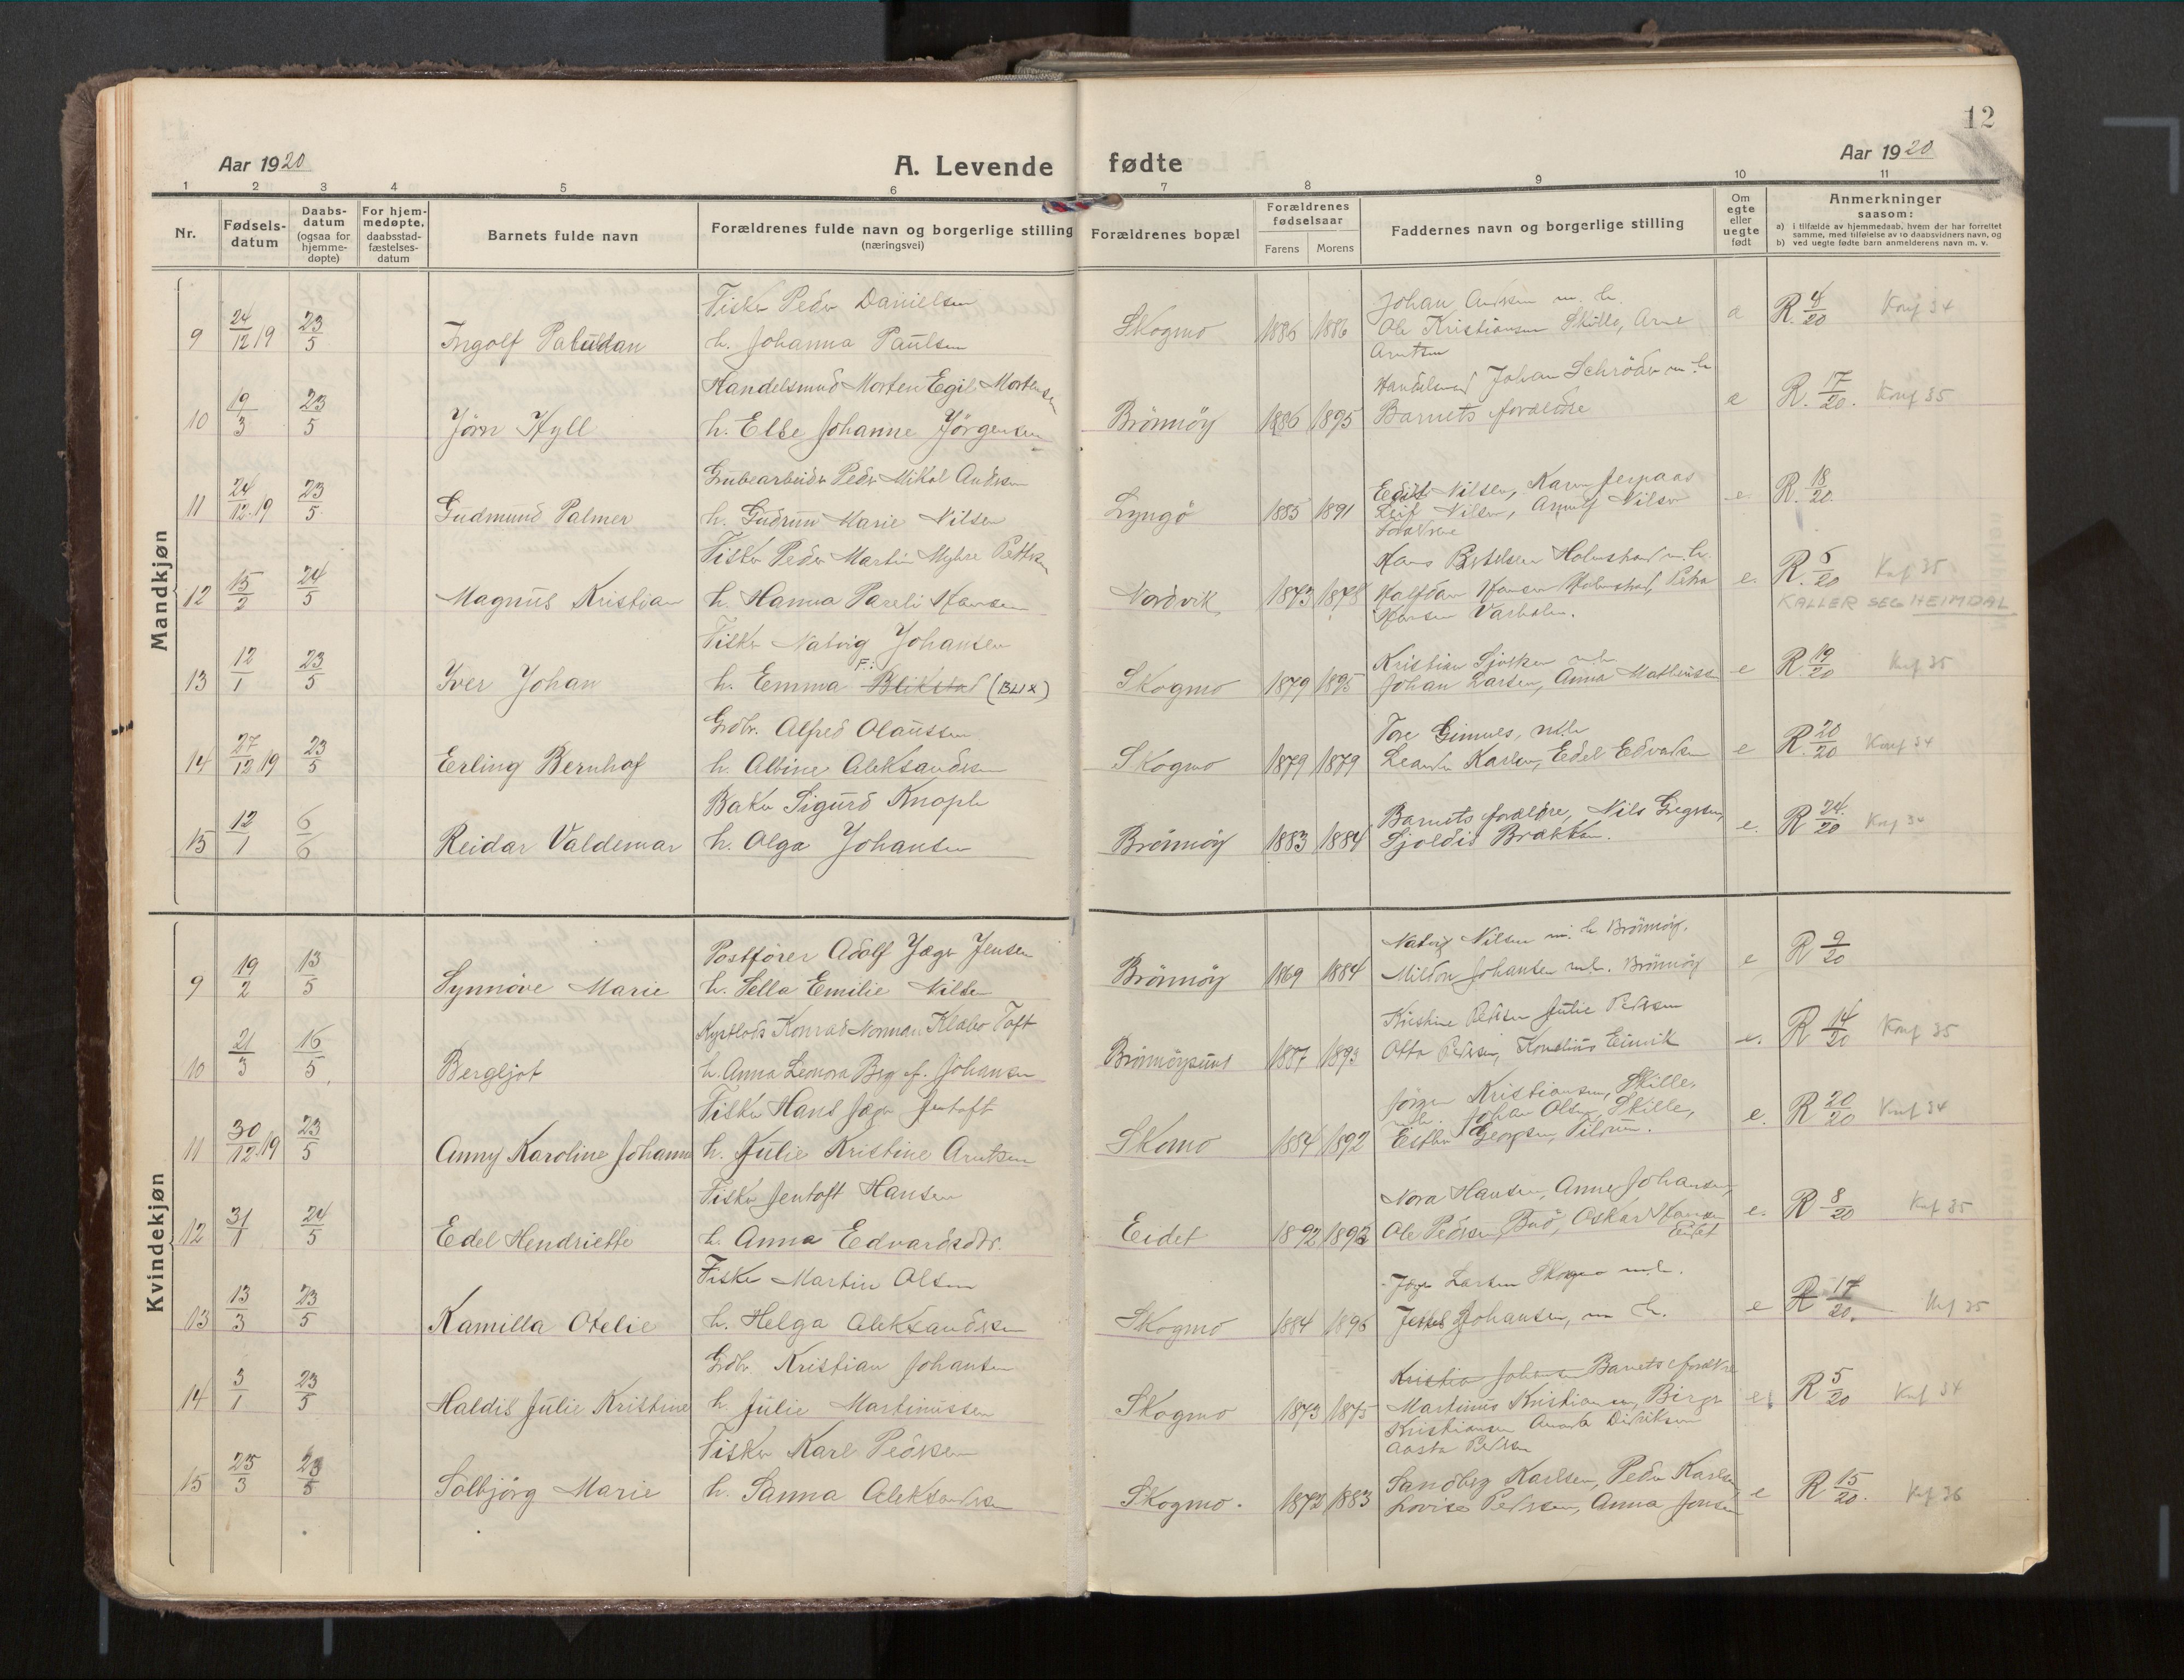 12
Aar 1920
A. Levende fødte
Aar 1920
1 2 3 4 5 6 7 8 9 10 11
Nr.
Fødsels-
datum
Daabs-
datum
(ogsaa for
hjemme-
døpte)
For hjem-
medøpte,
daabsstad-
fæstelses-
datum
Barnets fulde navn
Forældrenes fulde navn og borgerlige stilling
(næringsvei)
Forældrenes bopæl
Forældrenes
fødselsaar
Farens Morens
Faddernes navn og borgerlige stilling
Om
egte
eller
uegte
født
Anmerkninger
saasom:
a) i tilfælde av hjemmedaab, hvem der har forrettet
samme, med tilføielse av to daabsvidners navn, og
b) ved uegte fødte barn anmelderens navn m. v.
Mandkjøn
Fisker Peder Danielsen
Johan m. h.
9 24/12 19 23/5 Ingolf Paludan h. Johanna Paulsen Skogmo 1886 1886 Ole Kristiansen Skille, Arne e R. 4/20 Konf 34
Arntsen
Handelsmnd Morten Egil Mortensen
Johan Schröder m. h
10 19/3 23/5 Jörn Hyll h. Else Johanne Jörgensen Brönnöy 1886 1895 Barnets foreldre e R. 17/20. Konf 35
Grubearbeider Peder Mikal Andersen
Nilsen, Karen
11 24/12.19 23/5 Gudmund Palmer h. Gudrun Marie Nilsen Lyngö 1885 1891 Leif Nilsen, Nilsen e R. 18/20.
Foreldrene
Fisker Peder Martin Myhre Pettersen
Hans Bertelsen Holmstad m. h.
12 15/2 24/5 Magnus Kristian h. Hanna Pareli Hansen Nordvik 1873 1878 Halfdan Hansen Holmstad, Petra e. R. 6/20 Konf 35
Hansen
KALLER SEG HEIMDAL
Fisker Natvig Johansen
Kristian m. h.
13 12/1 23/5 Iver Johan h. Emma F.: Blikstad (BLIX) Skogmo 1879 1895 Johan Larsen, Anna Mathiussen e R. 19/20 Konf 35
Grdbr. Alfred Olaussen
Tore Gimnes, m. h.
14 27/12 19 23/5 Erling Bernhof h. Albine Aleksandersen Skogmo 1879 1879 Leander Karlsen, Edel Edvardsen e R. 20/20 Konf 34
Baker Sigurd Knoph
Barnets foreldre, Nils Gregersen,
15 12/1 6/6 Reidar Valdemar h. Olga Johansen Brönnöy 1883 1884 Sjoldis Brækkan. e. R 24./20 Konf 34
Kvindekjøn
Postförer Adolf Jæger Jensen
Natvig Nilsen m. h Brönnöy.
9 19/2 13/5 Synnöve Marie h. Sella Emilie Nilsen Brönnöy 1869 1884 Mildor Johansen m. h. Brönnöy e R 9/20
Kystlods Konrad Norman Klabo Toft
Kristine Julie Pedersen
10 21/3 16/5 Bergljot h. Anna Leonora Brg f. Johansen Brönnöysund 1887 1893 Otto Pedersen, Kornelius e. R 14/20 Konf 35
Fisker Hans Jæger Jentoft
Jörgen Kristiansen, Skille,
m. h. Johan Olsen, Skille,
11 30/12.19 23/5 Anny Karoline Johanne h. Julie Kristine Arntsen Skomo 1884 1892 Esther Georgsen, Tilrum. e. R 20/20 Konf 34
Fisker Jentoft Hansen
Nora Hansen, Anne Johansen,
12 31/1 24/5 Edel Hendriette h. Anna Edvardsdtr. Eidet 1892 1892 Ole Pedersen, Oskar Hansen e. R 8/20 Konf 35
Eidet
Fisker Martin Olsen
Larsen Skogmo m. h.
13 13/3 23/5 Kamilla Otelie h. Helga Aleksandersen Skogmo 1884 1896 Johansen, m h. e R 17/20. Konf 35
Grdbr Kristian Johansen
Kristian Johansen Barnets foreldre
14 3/1 23/5 Haldis Julie Kristine h. Julie Martinussen Skogmo 1873 1875 Martinus Kristiansen, Birger e. R 5/20 Konf 34
Kristiansen Didriksen
Aasta Pedersen
Fisker Karl Pedersen
Sandberg Karlsen, Peder Karlsen,
15 25/3 23/5 Solbjörg Marie h. Sanna Aleksandersen Skogmo. 1872 1883 Lovise Pedersen, Anna Jonsen e R 15/20. Konf 36